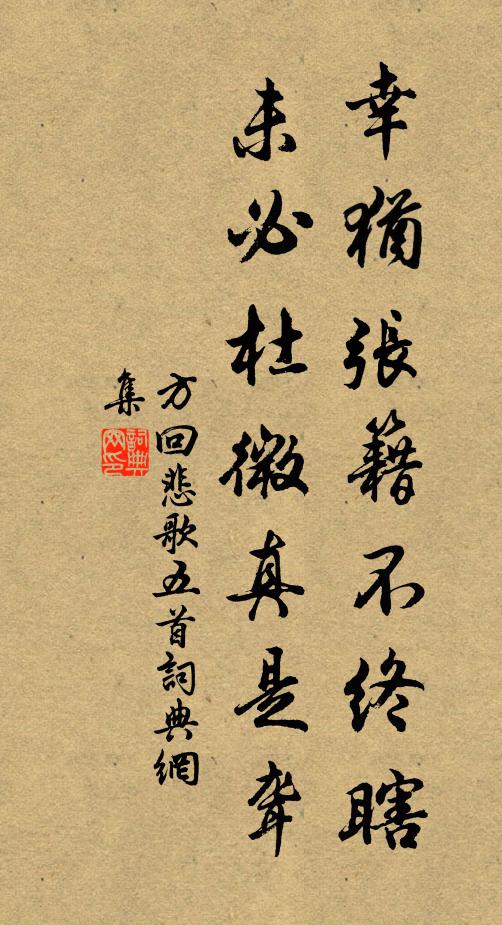 幸猶張籍不終瞎
未必杜微真是聾
方回悲歌五首詞典網
集
詞典網印